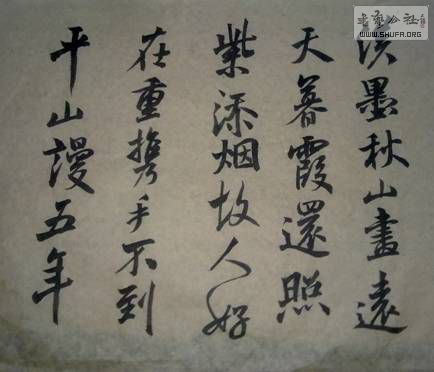 淡墨秋山盡遠
天暮霞還照
紫添烟故人好
在重携手不到
平山謾五年
书艺公社
WWW.SHUFA.ORG